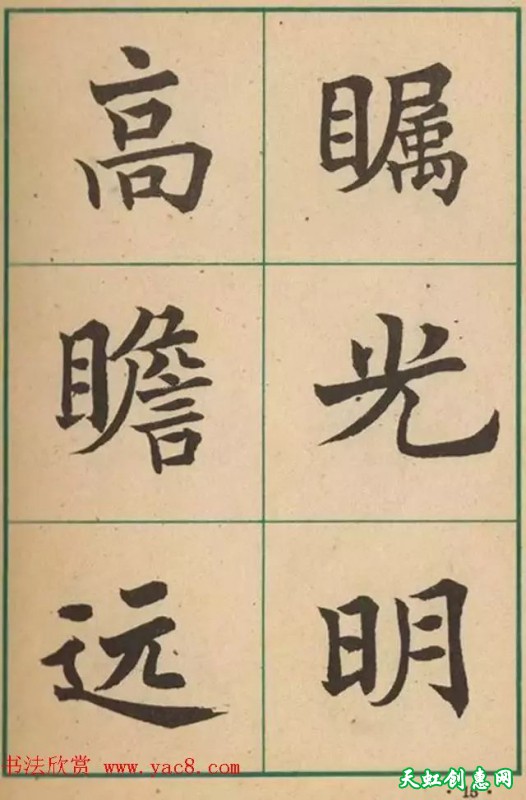 高瞻远
瞩光明
书法欣赏 www.yac8.com
天虹创惠网